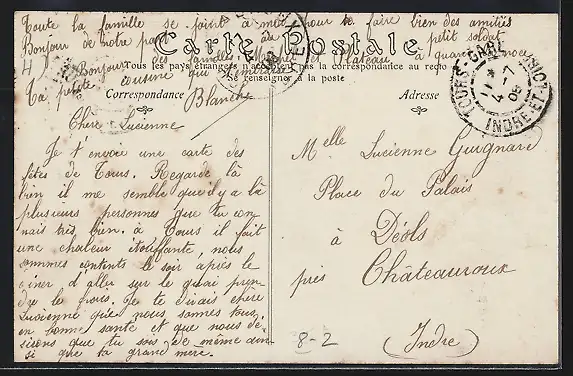 Toute la famille se joint à moi pour te faire bien des amitiés
Bonjour de notre part au petit soldat
Bonjour des familles et Plateau à quand
Ta petite cousine qui t'embrasse
Blanche
Carte Postale
Tous les pays étrangers n'acceptent pas la correspondance au recto
Se renseigner à la poste
Correspondance
Adresse
TOURS-GARE
INDRE-ET-LOIRE
11 *
4-7
08
Chère Lucienne
Je t'envoie une carte des
fêtes de Tours. Regarde là
bien il me semble qu'il y a là
plusieurs personnes que tu con
nais très bien. à Tours il fait
une chaleur étouffante, nous
sommes contents le soir après le
diner d'aller sur le quai pren
dre le frais. Je te dirais chère
Lucienne que nous sommes tous
en bonne santé et que nous dé
sirons que tu sois de même ain
si que ta grand mère.
Melle Lucienne Guignard
Place du Palais
à Déols
près Châteauroux
(Indre)
8-2